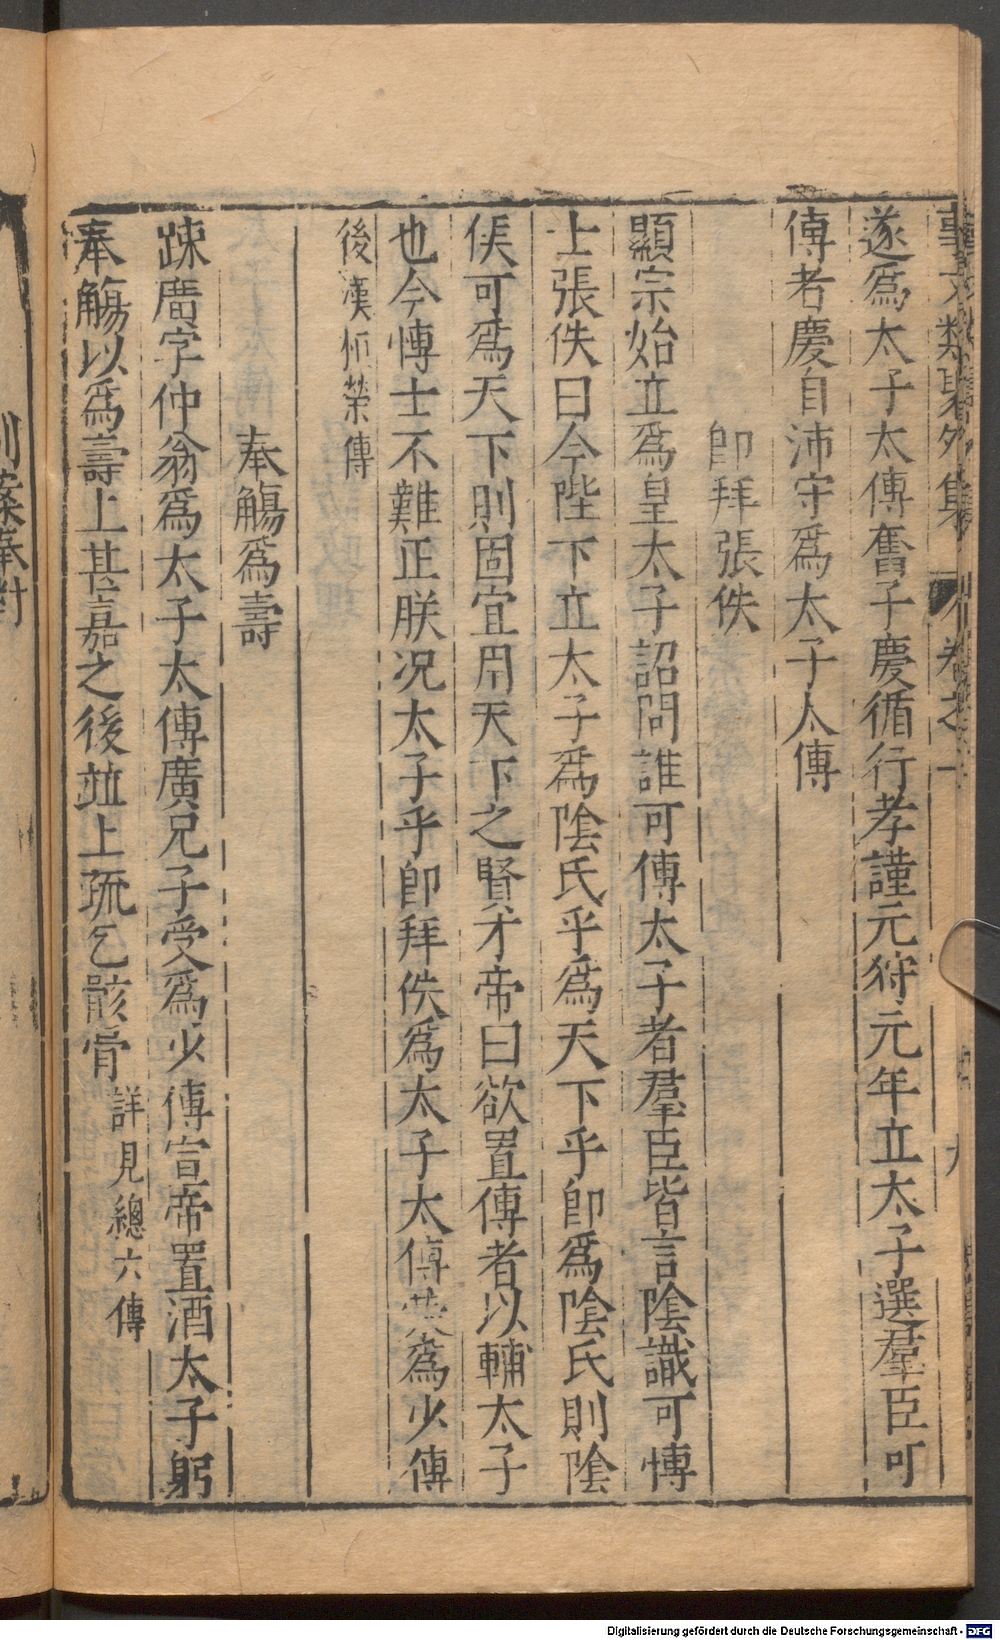 事文類聚外集 卷之二 九
遂爲太子太傅奮子慶循行孝謹元狩元年立太子選羣臣可
傅者慶自沛守爲太子太傅
即拜張佚
顯宗始立爲皇太子詔問誰可傅太子者羣臣皆言陰識可慱
上張佚曰今陛下立太子爲陰氏乎爲天下乎即爲陰氏則陰
侯可爲天下則固宜用天下之賢才帝曰欲置傅者以輔太子
也今慱士不難正朕况太子乎即拜佚爲太子太傅榮爲少傅
後漢桓榮傳
奉觴爲壽
疎廣字仲翁爲太子太傅廣兄子受爲少傅宣帝置酒太子躬
奉觴以爲壽上甚嘉之後並上疏乞骸骨 詳見總六傅
Digitalisierung gefördert durch die Deutsche Forschungsgemeinschaft - DFG